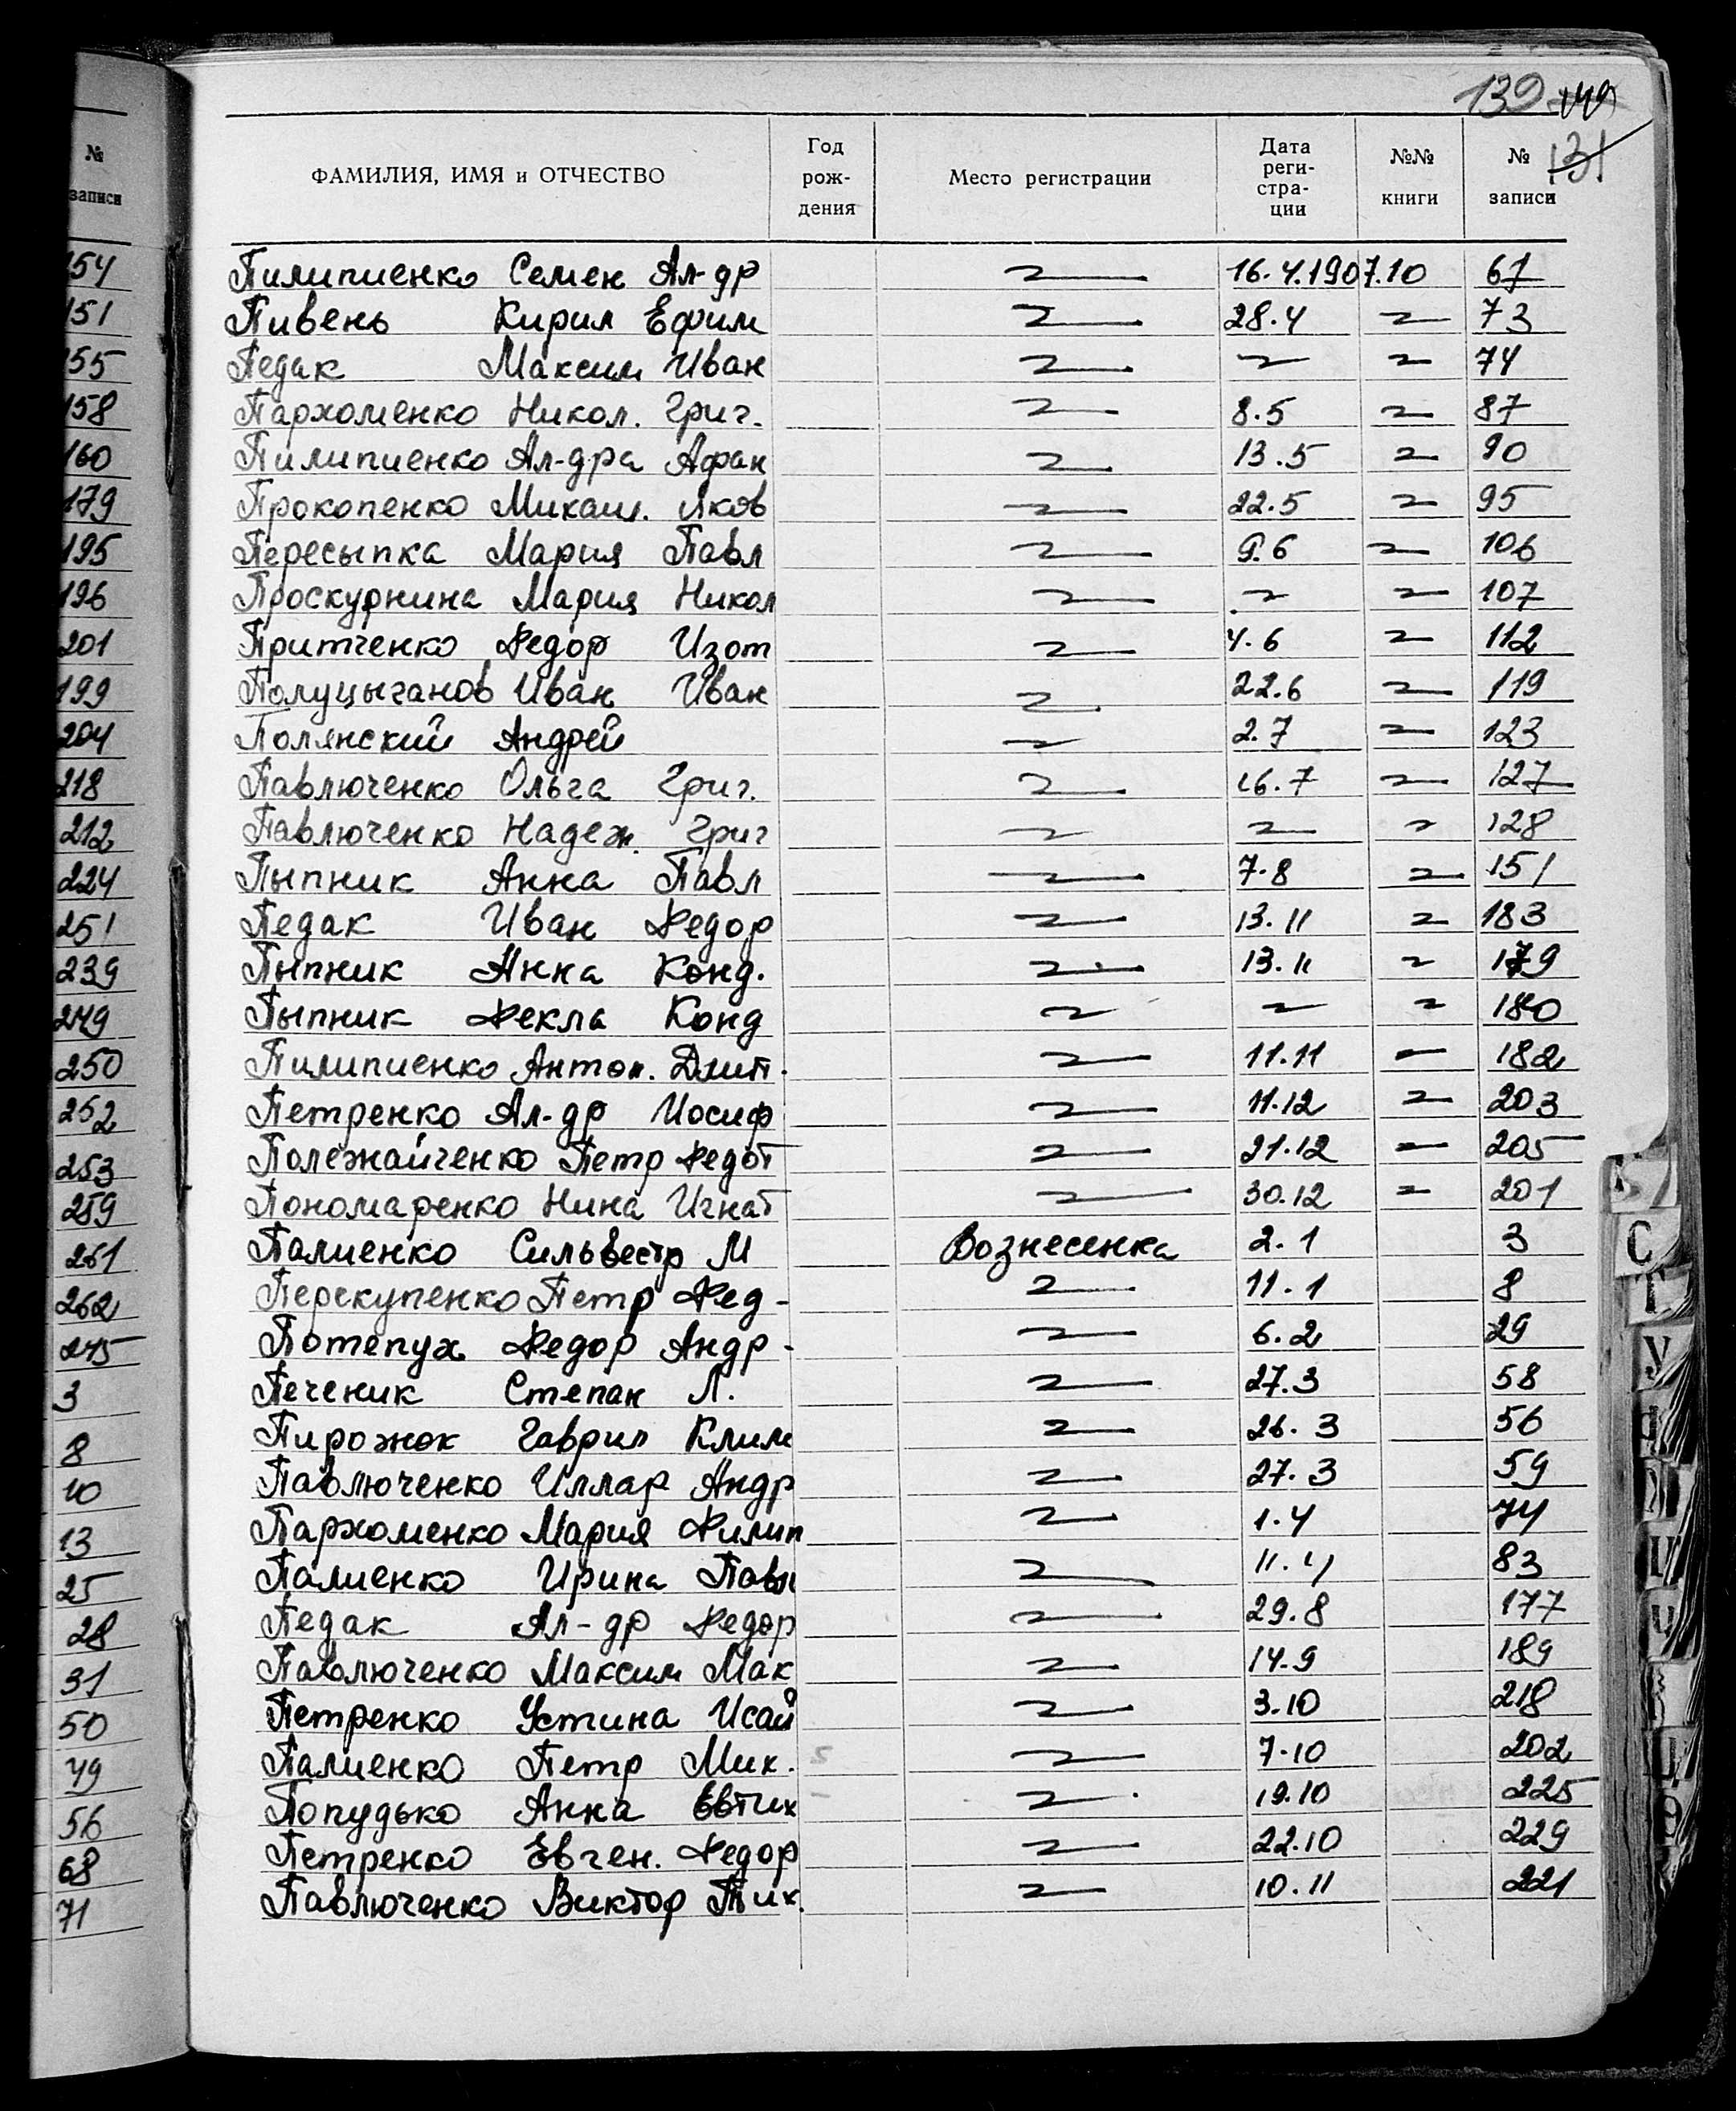 139 149
131
№ записи
ФАМИЛИЯ, ИМЯ и ОТЧЕСТВО Год рож- дения Место регистрации Дата реги- стра- ции №№ книги № записи
154 Пилипиенко Семен Ал-др 〃 16.4.1907. 10 67
151 Пивень Кирил Ефим 〃 28.4 〃 73
155 Педак Максим Иван 〃 〃 〃 74
158 Пархоменко Никол. Григ. 〃 8.5 〃 87
160 Пилипиенко Ал-дра Афан 〃 13.5 〃 90
179 Прокопенко Михаил. Яков 〃 22.5 〃 95
195 Пересыпка Мария Павл 〃 9.6 〃 106
196 Проскурнина Мария Никол 〃 〃 〃 107
201 Притченко Федор Изот 〃 4.6 〃 112
199 Полуцыганов Иван Иван 〃 22.6 〃 119
204 Полянский Андрей 〃 2.7 〃 123
218 Павлюченко Ольга Григ. 〃 16.7 〃 127
212 Павлюченко Надеж. Григ 〃 〃 〃 128
224 Пыпник Анна Павл 〃 7.8 〃 151
251 Педак Иван Федор 〃 13.11 〃 183
239 Пыпник Анна Конд. 〃 13.11 〃 179
249 Пыпник Фекла Конд 〃 〃 〃 180
250 Пилипиенко Антон. Дмит. 〃 11.11 〃 182
252 Петренко Ал-др Иосиф 〃 11.12 〃 203
253 Полежайченко Петр Федот 〃 21.12 〃 205
259 Пономаренко Нина Игнат 〃 30.12 〃 201
261 Палиенко Сильвестр М Вознесенка 2.1 3
262 Перекупенко Петр Фед- 〃 11.1 8
275 Потепух Федор Андр- 〃 6.2 29
3 Печеник Степан Л. 〃 27.3 58
8 Пирожок Гаврил Клим 〃 26.3 56
10 Павлюченко Иллар Андр 〃 27.3 59
13 Пархоменко Мария Филип 〃 1.4 74
25 Палиенко Ирина Павл 〃 11.4 83
28 Педак Ал-др Федор 〃 29.8 177
31 Павлюченко Максим Мак 〃 14.9 189
50 Петренко Устина Исай 〃 3.10 218
49 Палиенко Петр Мих. 〃 7.10 202
56 Попудько Анна Евтих 〃 19.10 225
68 Петренко Евген. Федор 〃 22.10 229
71 Павлюченко Виктор Тих. 〃 10.11 221
С
Т
У
Ч